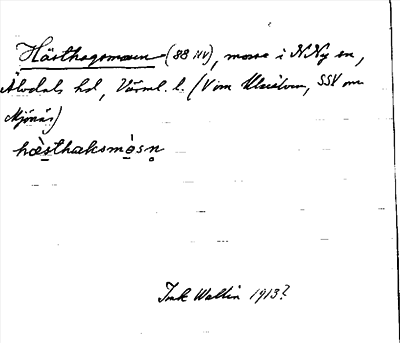 Hästhagsmossen (88 NV), mosse i N Ny sn,
Älvdals hd, Värml. l. (V om Klarälven, SSV om
Mjönäs)
hæ̀sthaksmo̱sn̥
Ink Wallin 1913?